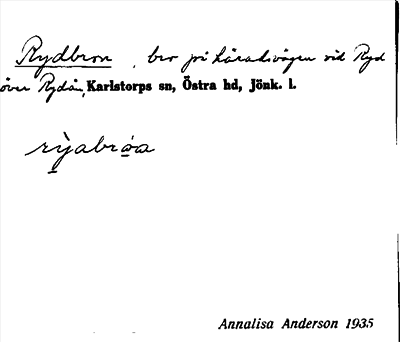 Rydbron, bro på häradsvägen vid Ryd
över Rydån, Karlstorps sn, Östra hd, Jönk. l.
rỳabróa
Annalisa Anderson 1935